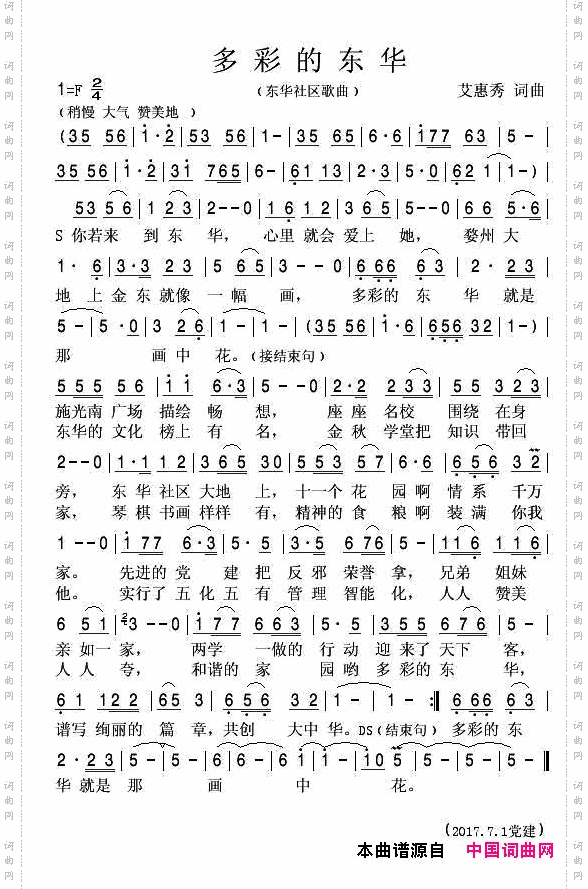 多彩的东华
1=F 2/4
(东华社区歌曲)
艾惠秀 词曲
(稍慢 大气 赞美地 )
(35 56 | 1·2 | 53 56 | 6 - | 6·5 | 6·2 | 177 63 | 5 - |
35 56 | 1·2 | 31 765 | 6 - | 61 13 | 2·3 | 5·0 | 62 1 | 1 -) |
53 56 | 1 23 | 2--0 | 16 12 | 3·5 | 2--0 | 66 02 | 5·6 |
S 你若来 到 东 华, 心里 就会 爱上 她, 婺州 大
1· 6 | 3·3 23 | 5 65 | 3--0 | 6·66 63 | 2· 23 |
地 上 金 东 就像 一 幅 画, 多彩的 东 华 就是
5 - | 5·0 | 3 26 | 1 - | 1 - | (35 56 | 1·6 | 656 32 | 1 -)|
那 画 中 花。(接结束句)
555 556 | 1 1 | 6·3 | 5--0 | 2·2 233 | 5·5 233 |
施光南 广场 描绘 畅 想, 座 座 名校 围绕 在身
东华的 文化 榜上 有 名, 金 秋 学堂把 知识 带回
2--0 | 1·1 12 | 365 30 | 5 53 57 | 6·6 | 656 32 |
旁, 东 华 社区 大地 上, 十一个 花 园啊 情 系 千万
家, 琴 棋 书画 样样 有, 精神的 食 粮啊 装 满 你我
1--0 | 177 6·3 | 5·5 | 3·5 676 | 5 - | 116 116 |
家。 先进的 党 建 把 反 邪 荣誉 拿, 兄弟 姐妹
他。 实行了 五 化 五 有 管 理 智能 化, 人人 赞美
6 51 | 3--0 | 177 663 | 5·5 | 355 223 | 5 - |
亲 如一 家, 两学 一做的 行 动 迎 来了 天下 客,
人 人 夸, 和谐的 家 园哟 多彩的 东 华,
61 122 | 65 3 | 656 32 | 1 - | 1 - :| 6·66 63 |
谱写 绚丽的 篇 章,共创 大中 华。DS(结束句) 多彩的 东
2·23 | 5 - | 5 - | 6 - | 6 61 | 1 - | 1 - | 10 5 | 5 - | 5 - | 5 - ||
华 就是 那 画 中 花。
(2017.7.1党建)
本曲谱源自 中国词曲网
词曲网